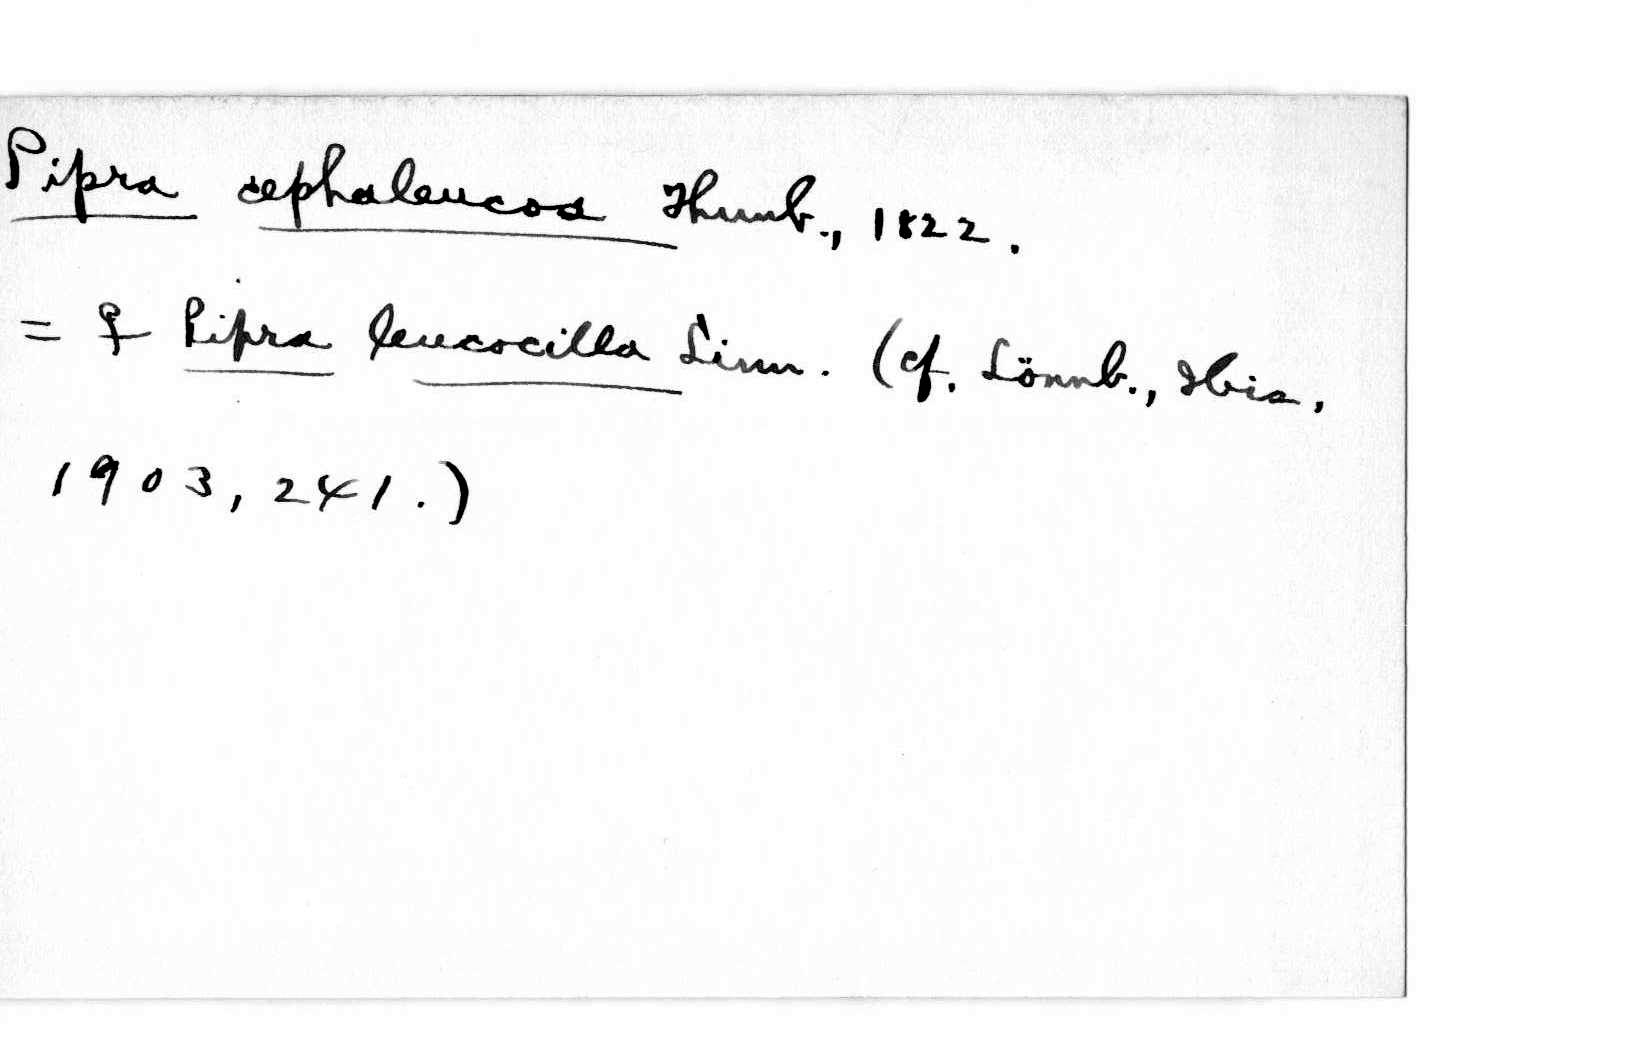 Pipra cephaleucos Thunb., 1822.
= ♀ Pipra leucocilla Linn. (cf. Lönnb., Ibis,
1903, 241.)